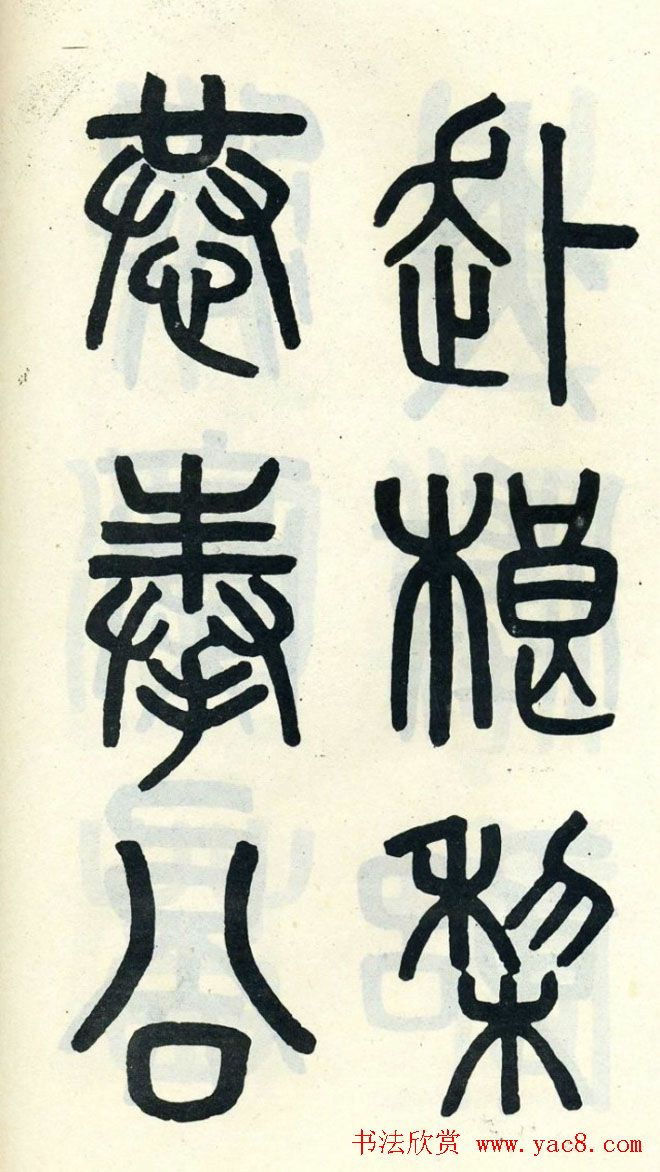 赴梨
恭奉公
书法欣赏 www.yac8.com